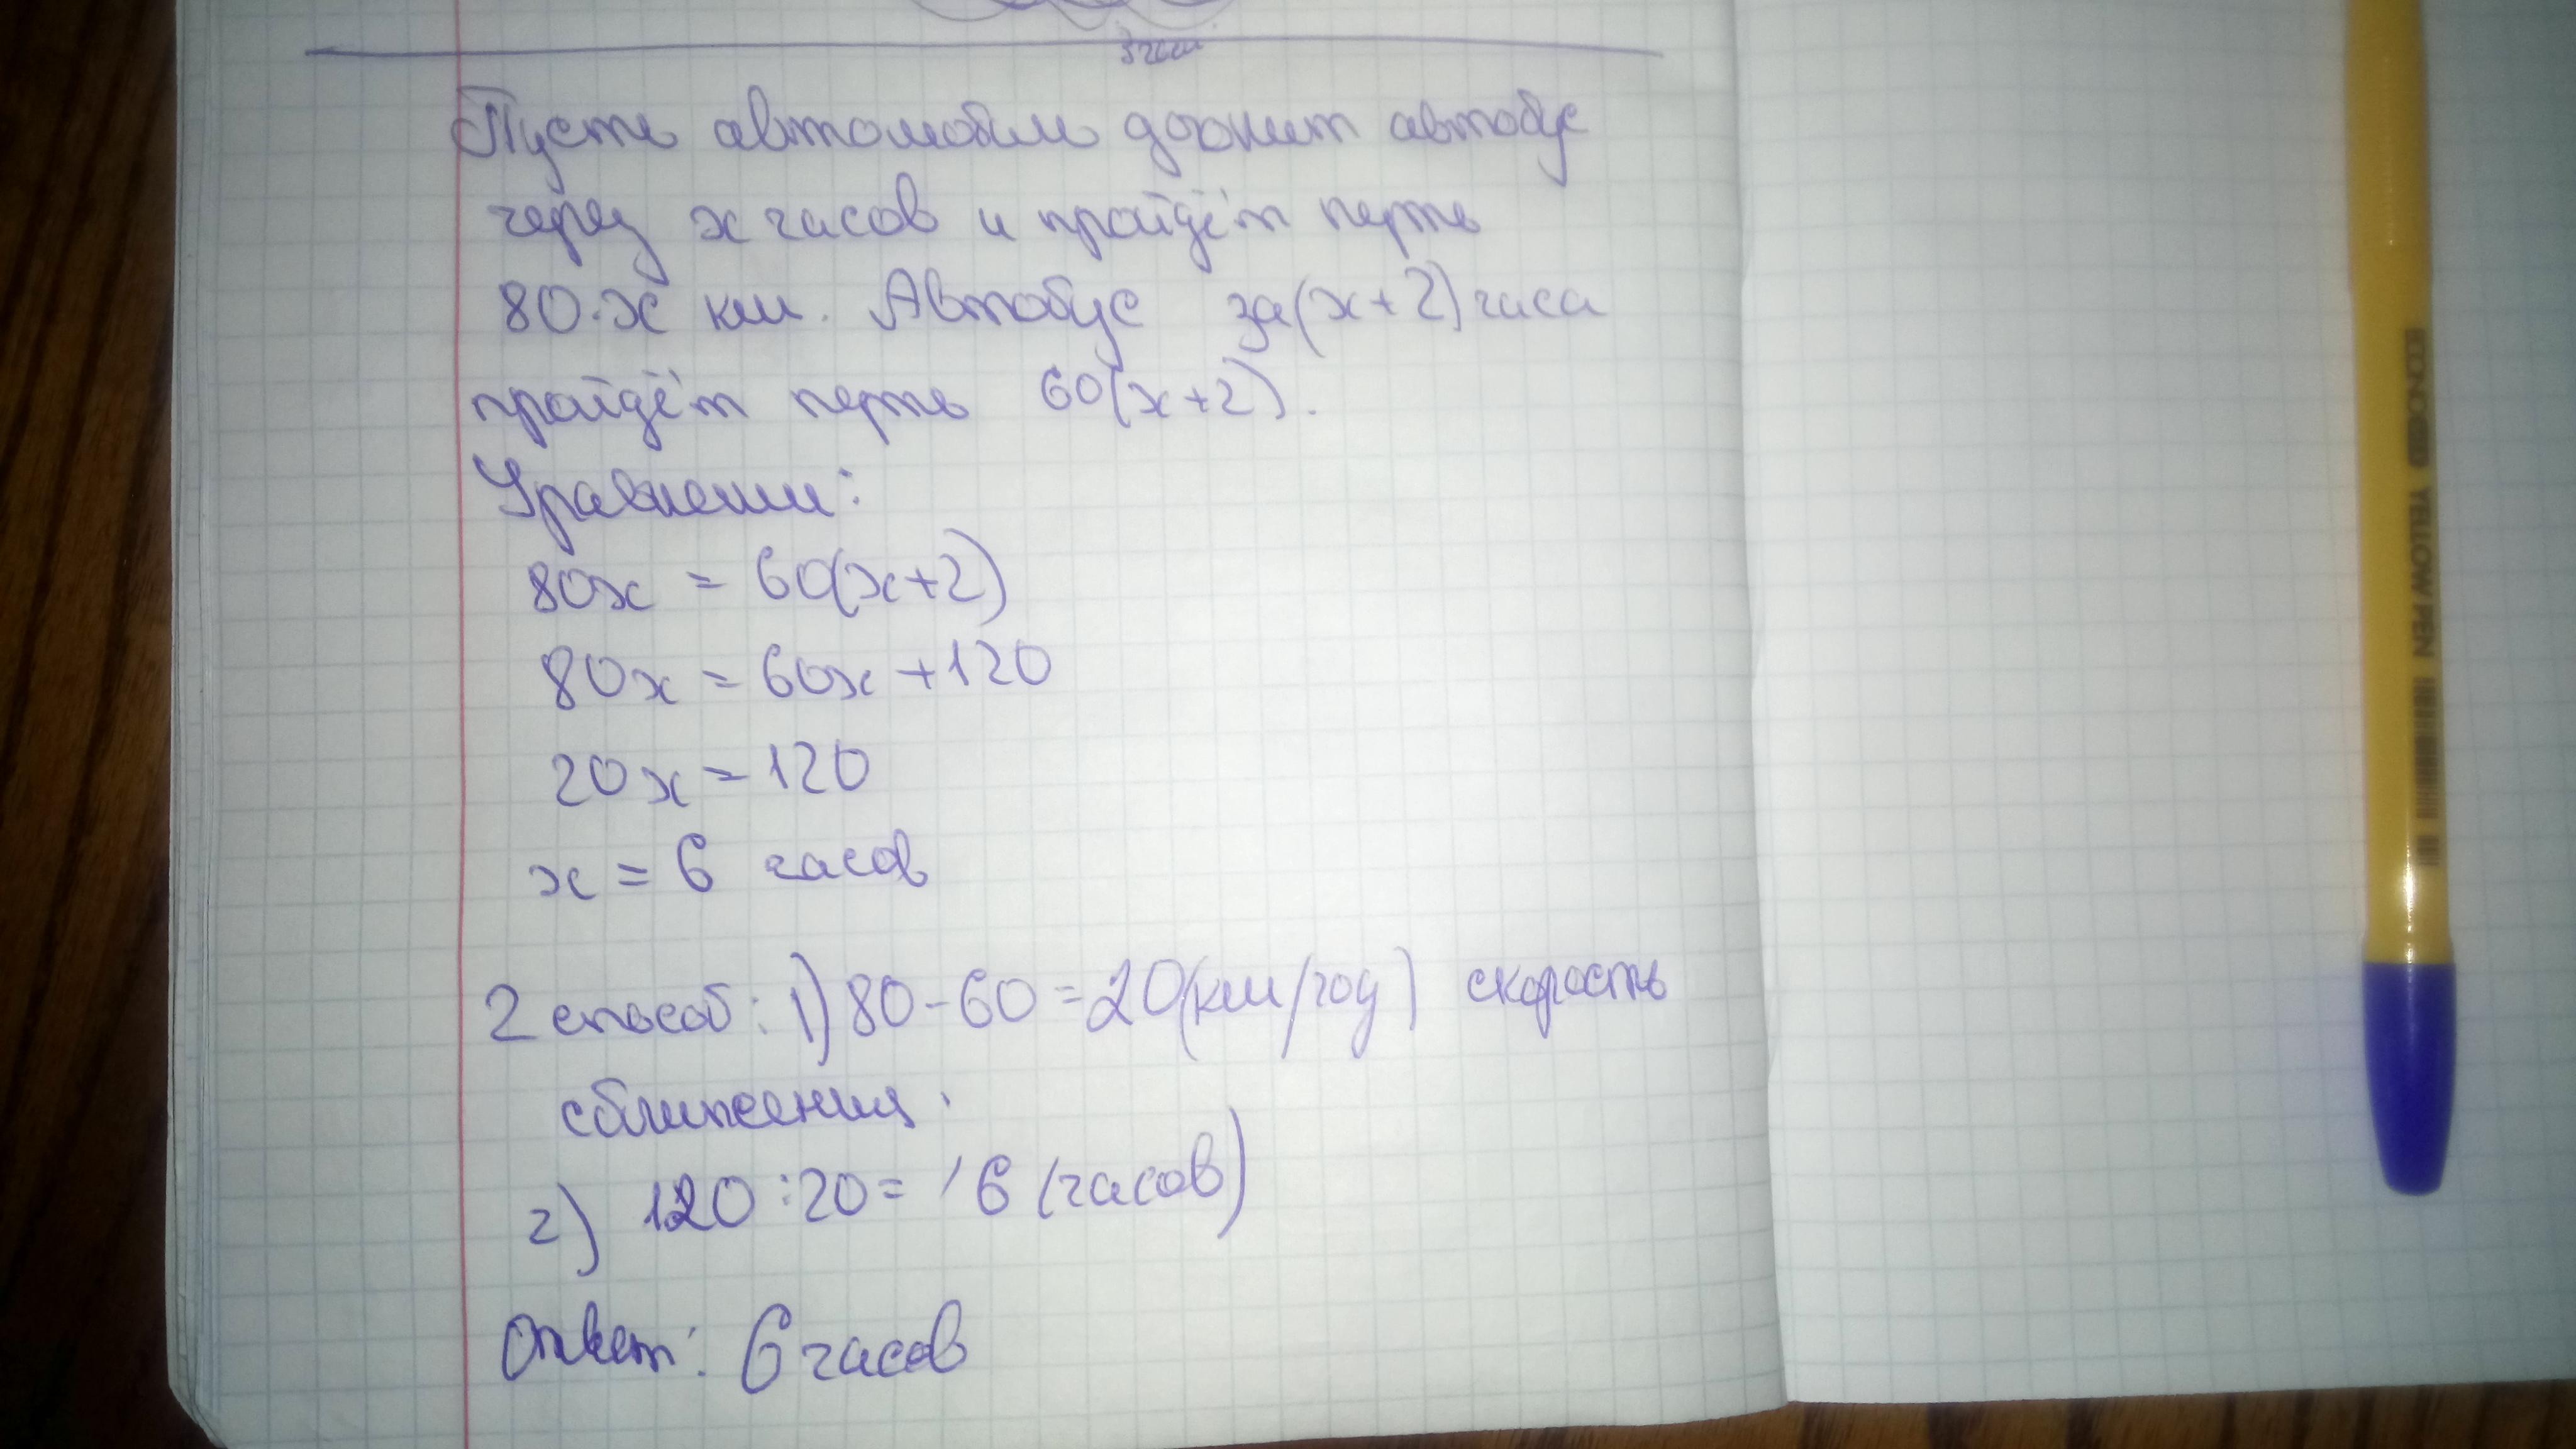 Пусть автомобиль догонит автобус
через x часов и пройдёт путь
80·x км. Автобус за (x+2) часа
пройдёт путь 60(x+2).
Уравнение:
80x = 60(x+2)
80x = 60x + 120
20x = 120
x = 6 часов
2 способ: 1) 80-60=20(км/год) скорость
сближения.
2) 120:20= 6 (часов)
Ответ: 6 часов
BONDO YELLOW PEN